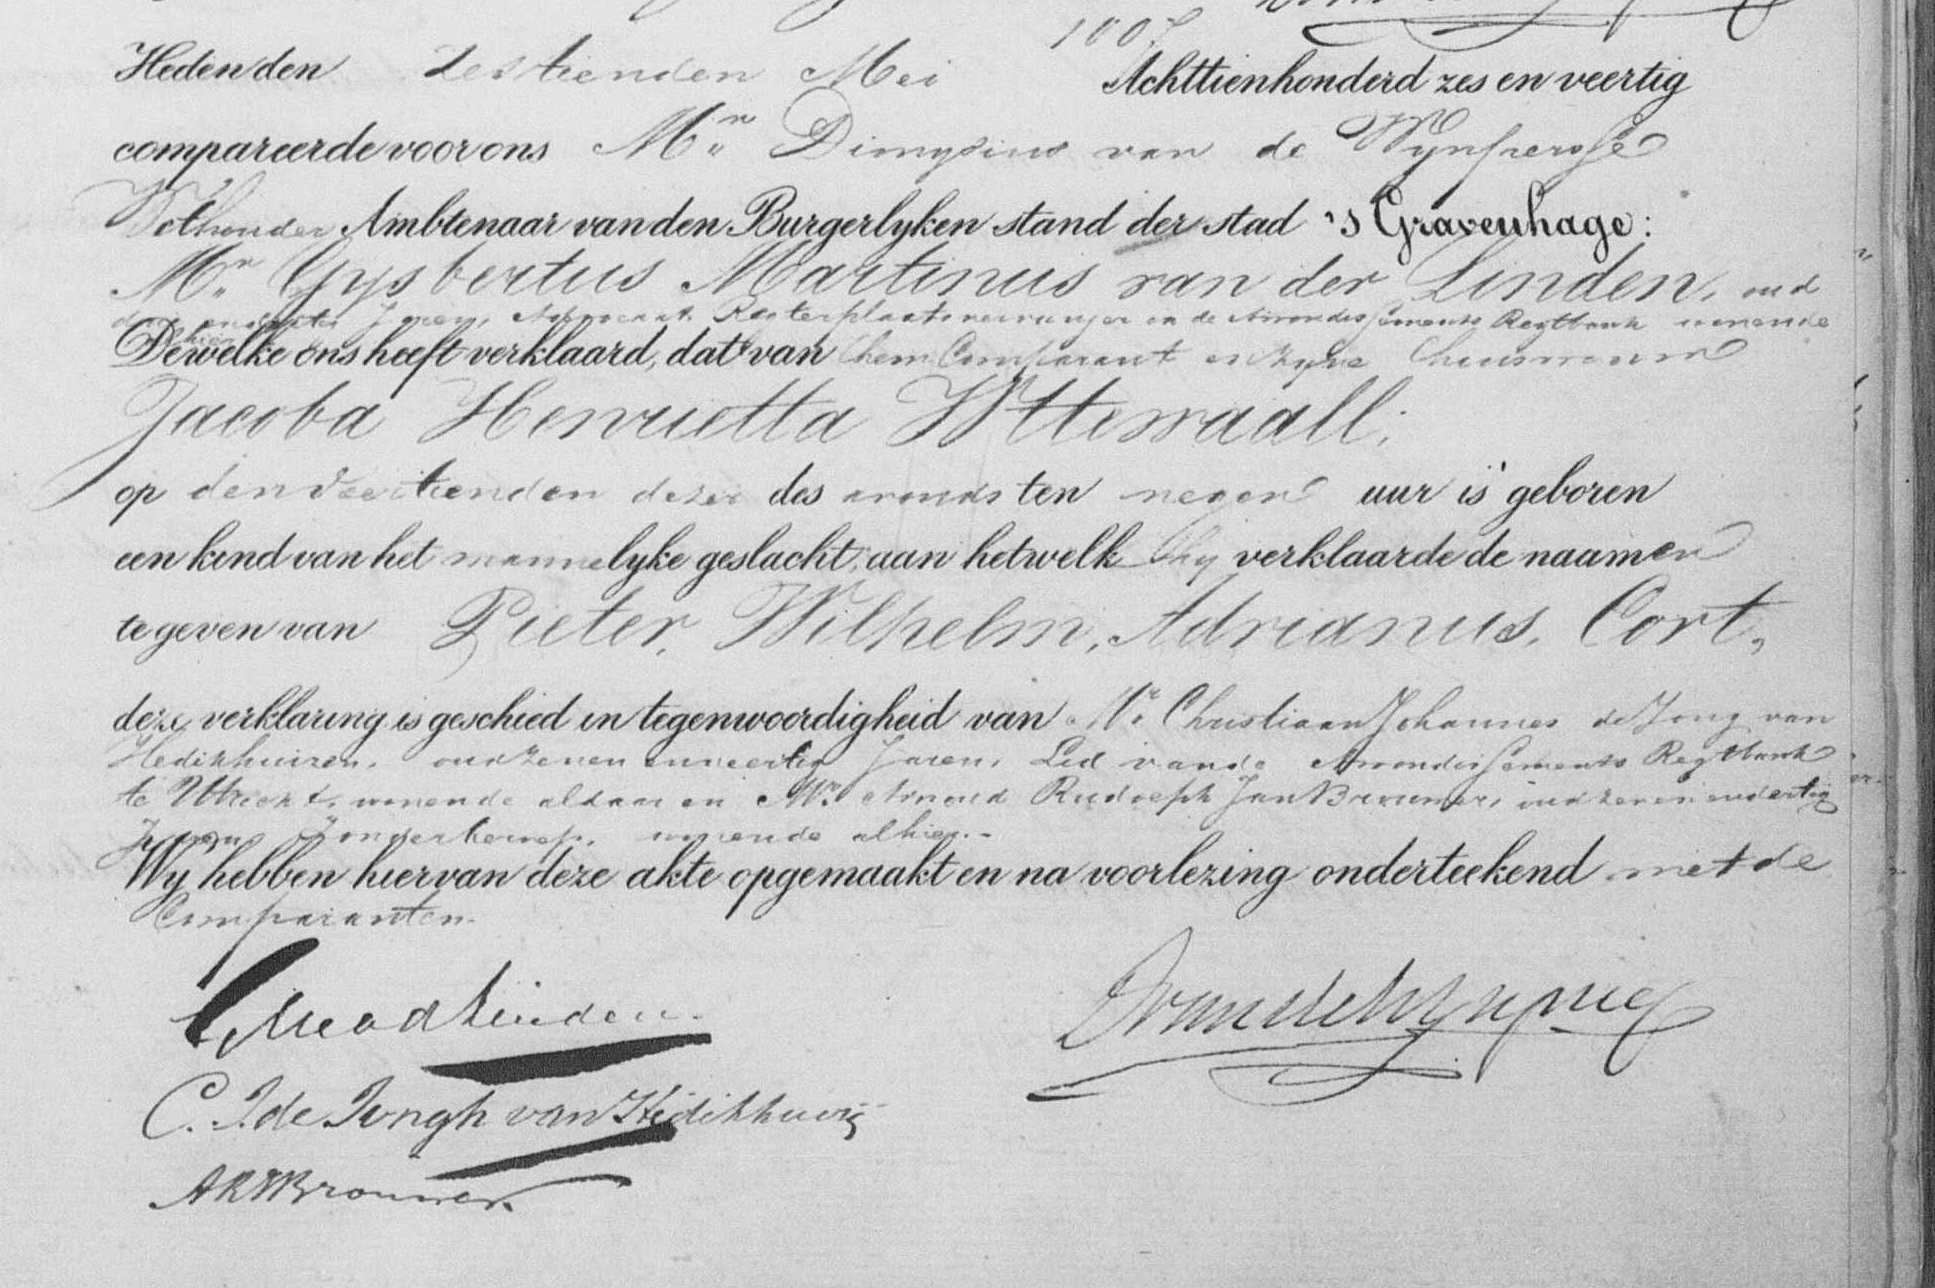 1007
Heden den Zestienden Mei Achttienhonderd zes en veertig
compareerde voor ons Mr. Dionysius van de Wynpersse
Wethouder Ambtenaar van den Burgerlyken stand der stad 's Gravenhage:
Mr. Gysbertus Martinus van der Linden, oud
drie en dertig Jaren, Advocaat Regterplaatsvervanger in de Arrondissements Regtbank wonende
alhier
Dewelke ons heeft verklaard, dat van hem Comparant en zyne huisvrouw
Jacoba Henrietta Wttewaall;
op den veertienden dezer des avonds ten negen uur is geboren
een kind van het mannelyke geslacht, aan hetwelk hy verklaarde de naamen
te geven van Pieter, Wilhelm, Adrianus, Cort,
deze verklaring is geschied in tegenwoordigheid van Mr. Christiaan Johannes de Jong van
Hedikhuizen, oud zeven en veertig Jaren, Lid van de Arrondissements Regtbank
te Utrecht, wonende aldaar en Mr. Arnoud Rudolph Jan Brouwer, oud zeven en dertig
Jaren Zonder beroep, wonende alhier.-
Wy hebben hiervan deze akte opgemaakt en na voorlezing onderteekend met de
Comparanten.
GMvadLinden.
DvandeWynpersse
C. J. de Jongh van Hedikhuiz
ARJBrouwer.